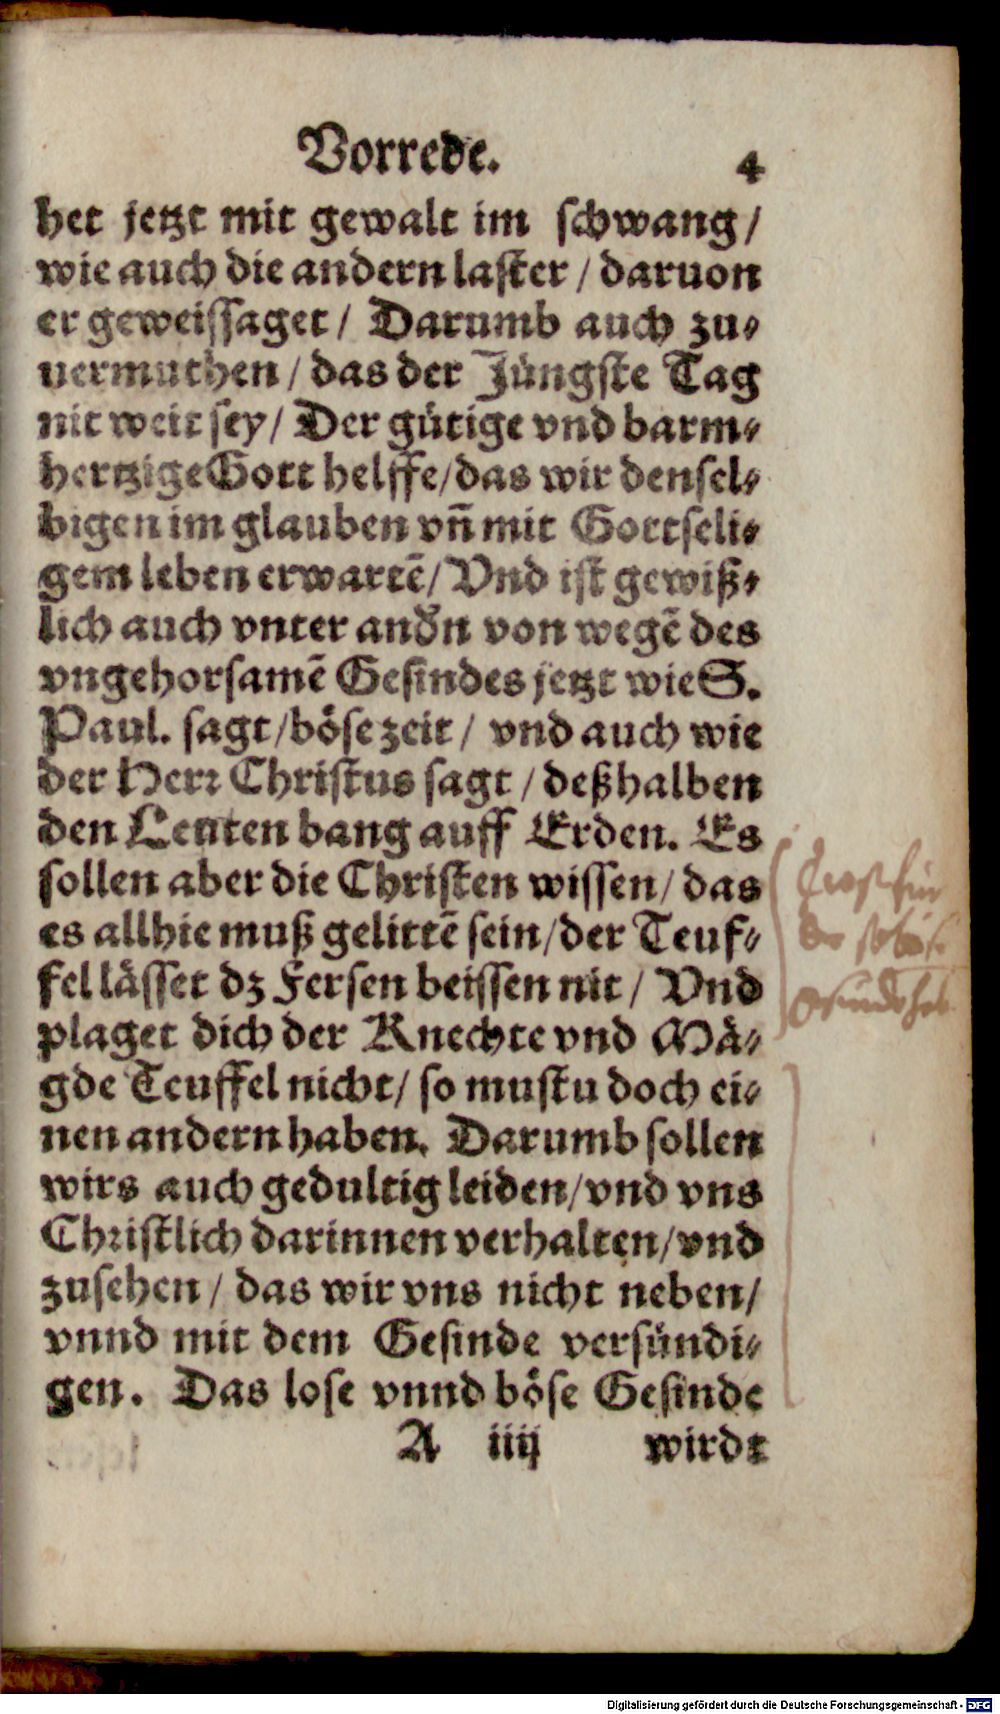 Vorrede. 4
het jetzt mit gewalt im schwang/
wie auch die andern laster / daruon
er geweissaget / Darumb auch zu⸗
uermuthen / das der Jüngste Tag
nit weit sey/ Der gütige vnd barm⸗
hertzige Gott helffe/das wir densel⸗
bigen im glauben vñ mit Gottseli⸗
gem leben erwartẽ/ Vnd ist gewiß⸗
lich auch vnter andn von wegẽ des
vngehorsamẽ Gesindes jetzt wie S.
Paul. sagt/böse zeit / vnd auch wie
der Herr Christus sagt / deßhalben
den Leuten bang auff Erden. Es
sollen aber die Christen wissen/ das
es allhie muß gelittẽ sein/der Teuf⸗
fel lässet dz Fersen beissen nit / Vnd
plaget dich der Knechte vnd Mä⸗
gde Teuffel nicht/ so mustu doch ei⸗
nen andern haben. Darumb sollen
wirs auch gedultig leiden/vnd vns
Christlich darinnen verhalten/vnd
zusehen / das wir vns nicht neben/
vnnd mit dem Gesinde versündi⸗
gen. Das lose vnnd böse Gesinde
A iiij wirdt
Trost für
der böse
Digitalisierung gefördert durch die Deutsche Forschungsgemeinschaft - DFG